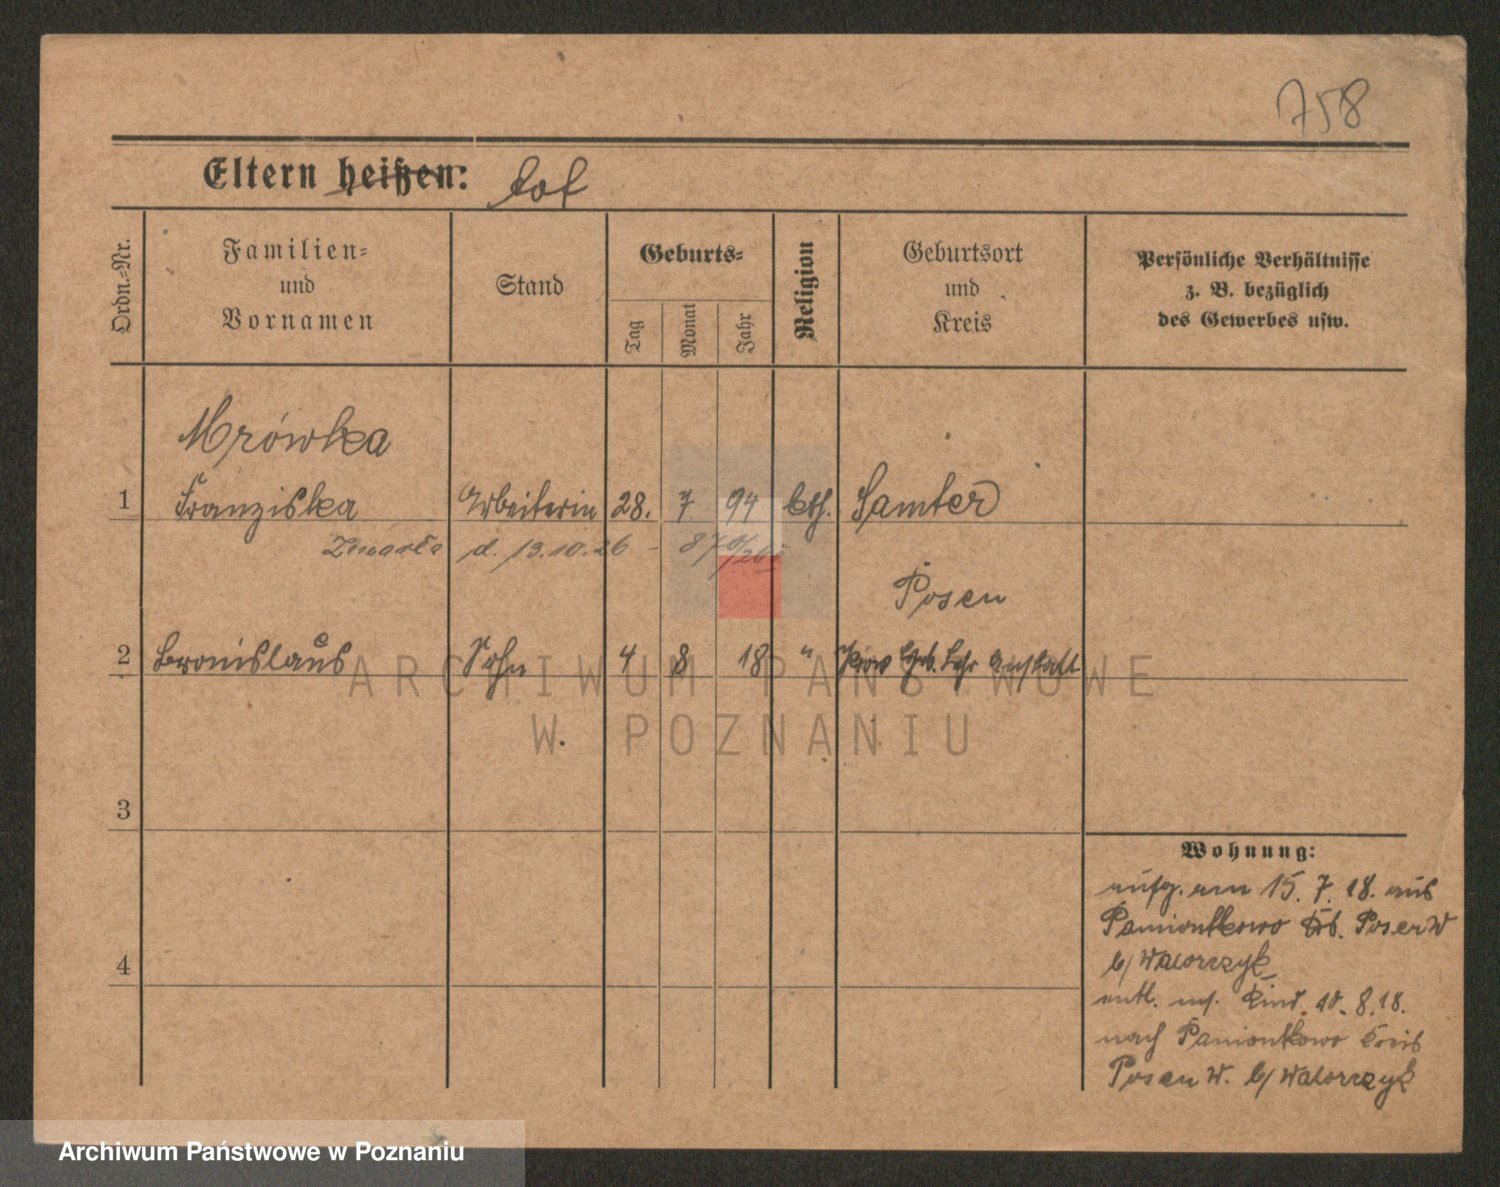 758
Eltern heißen: tot
Ordn.-Nr.
Familien-
und
Vornamen
Stand
Geburts-
Tag
Monat
Jahr
Religion
Geburtsort
und
Kreis
Persönliche Verhältnisse
z. B. bezüglich
des Gewerbes usw.
Mrówka
1 Franziska Arbeiterin 28. 7 94 kth. Samter
Zmarła d. 13.10.26 -
Posen
2 Bronislaus Sohn 4 8 18 " Prov Heb. Lehr Anstalt
3
4
Wohnung:
aufg. am 15. 7. 18. aus
Pamiontkowo Krs. Posen W
b/ Walorczyk
entl. m. Kind. 10. 8. 18.
nach Pamiontkowo Kreis
Posen W. b/ Walorczyk
ARCHIWUM PAŃSTWOWE
W POZNANIU
Archiwum Państwowe w Poznaniu